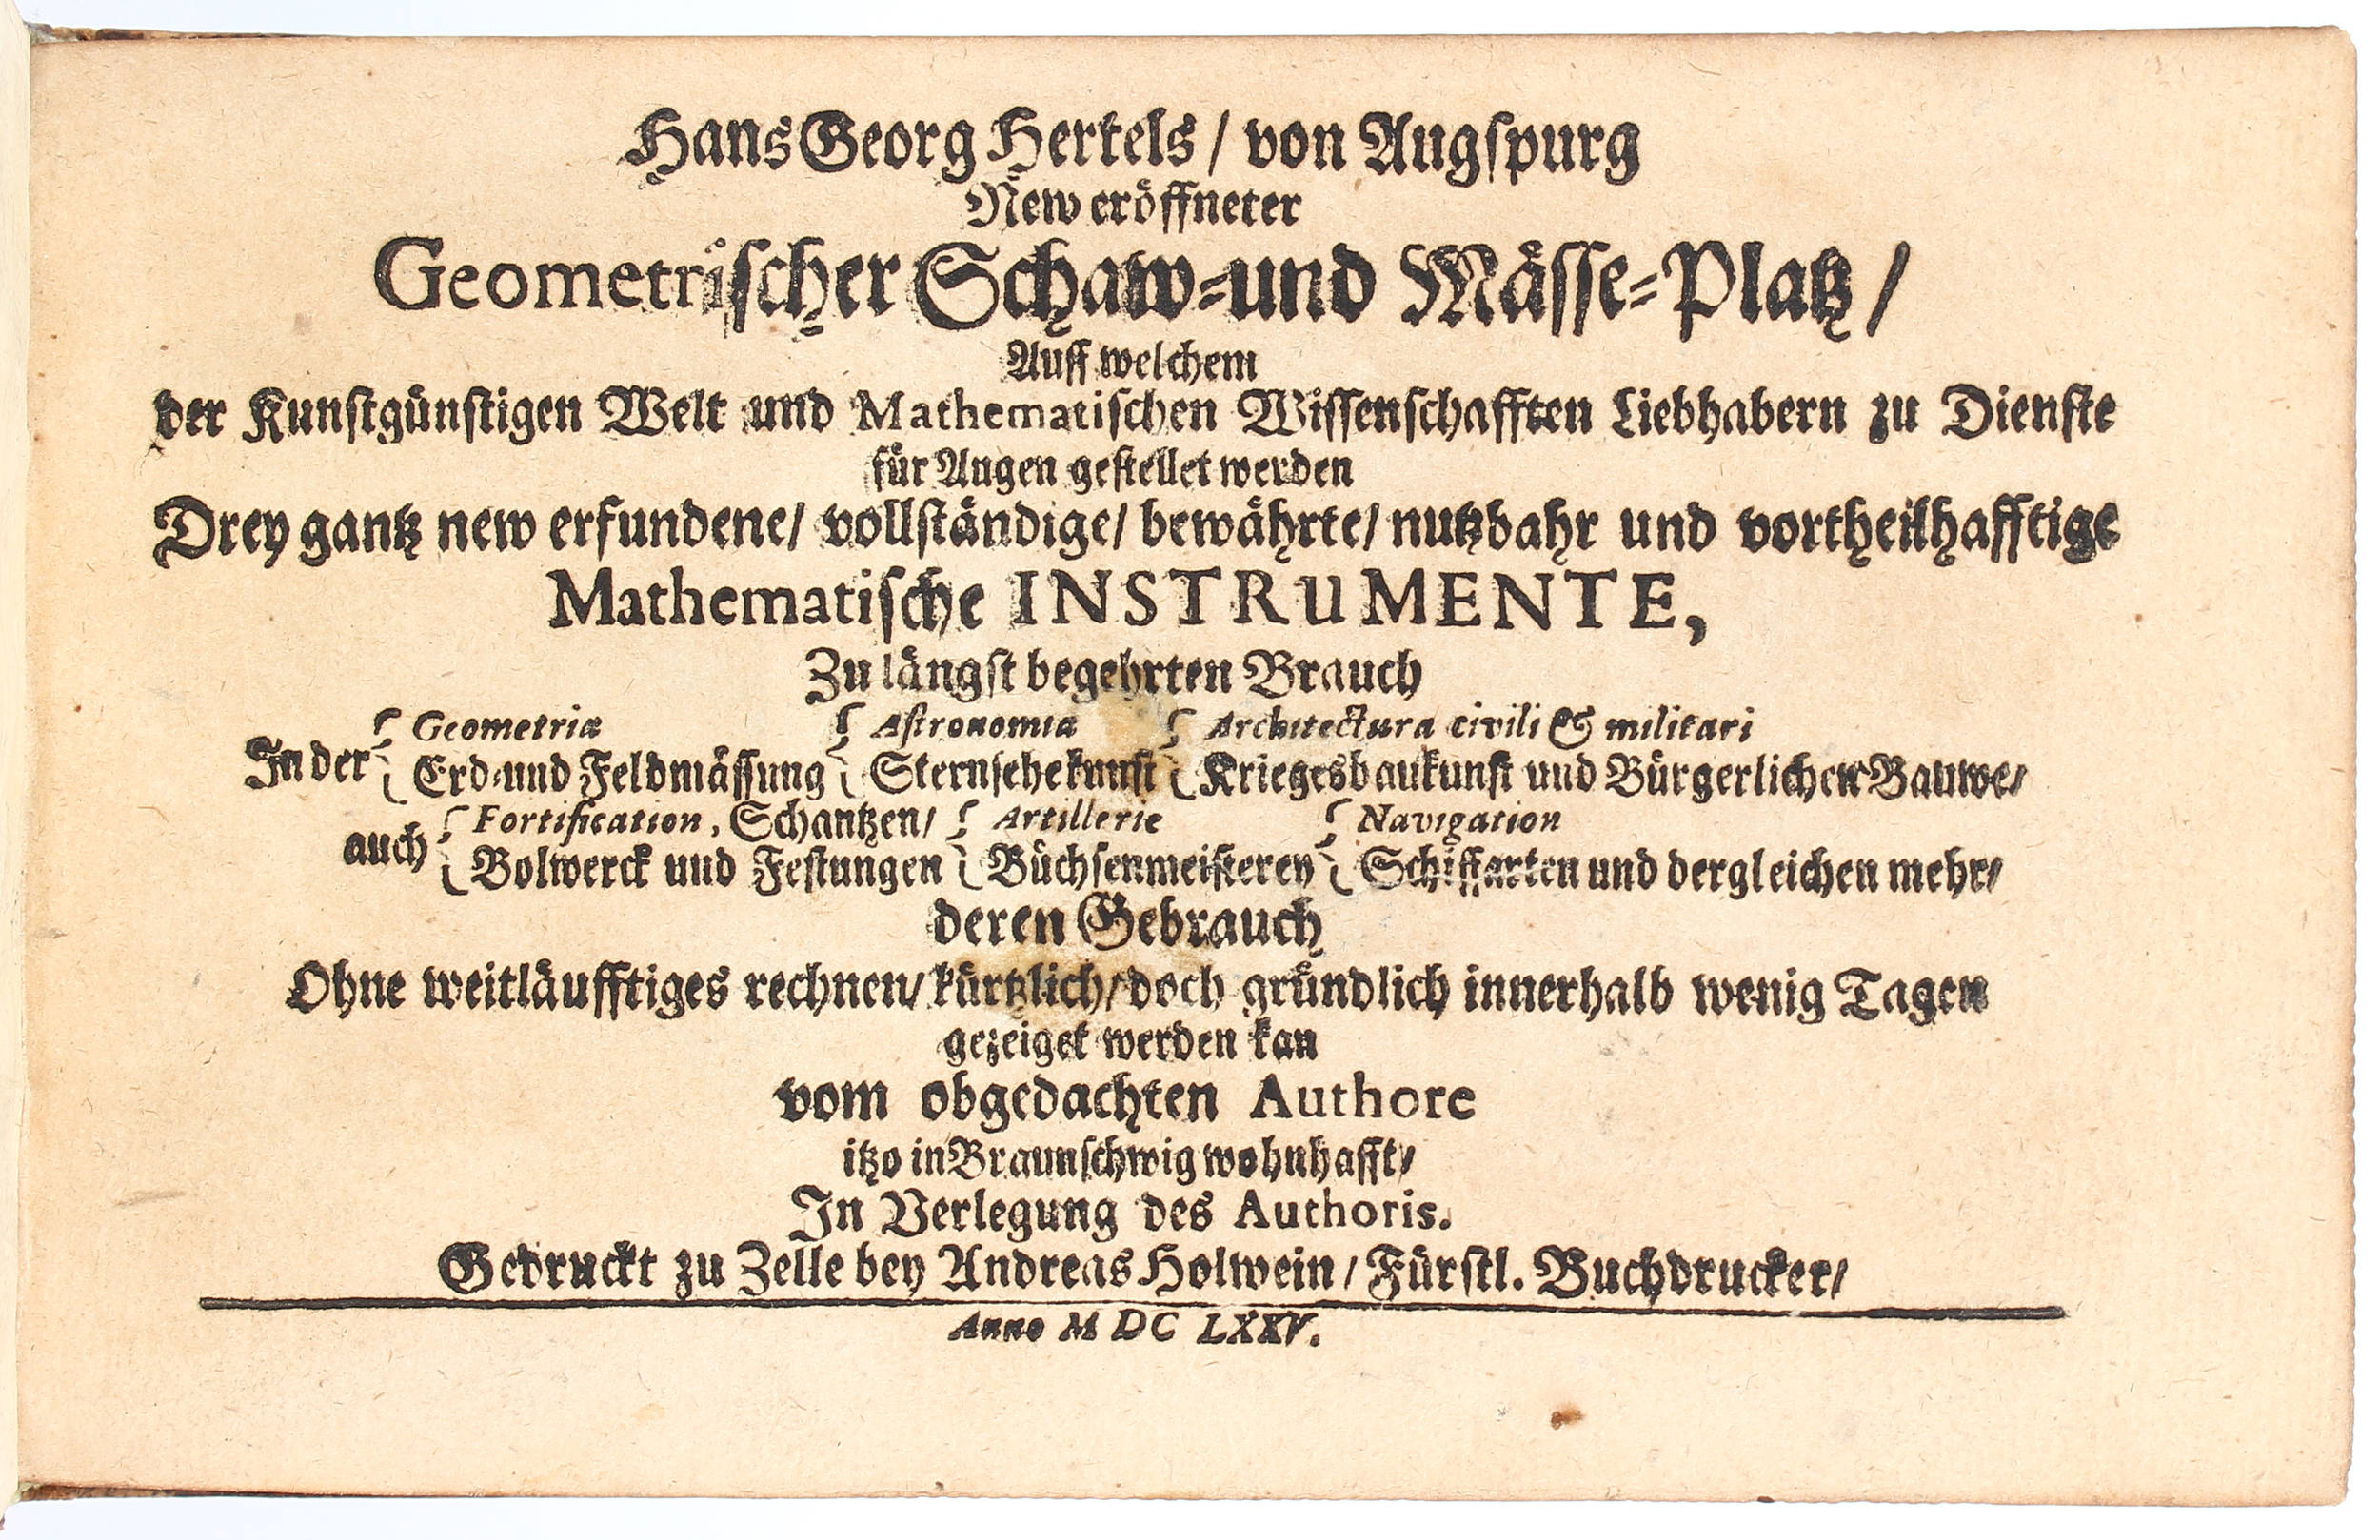 Hans Georg Hertels / von Augspurg
New eröffneter
Geometrischer Schaw-und Mässe-Platz /
Auff welchem
der Kunstgünstigen Welt und Mathematischen Wissenschafften Liebhabern zu Dienste
für Augen gestellet werden
Drey gantz new erfundene/ vollständige/ bewährte/ nutzbahr und vortheilhafftige
Mathematische INSTRuMENTE,
Zu längst begehrten Brauch
Geometria Astronomia Architectura civili & militari
In der Erd-und Feldmässung Sternsehekunst Kriegesbaukunst und Bürgerlichen Bauwe/
Fortification, Schantzen/ Artillerie Navigation
auch Bolwerck und Festungen Büchsenmeisterey Schiffarten und dergleichen mehr/
deren Gebrauch
Ohne weitläufftiges rechnen/ kürtzlich/ doch gründlich innerhalb wenig Tagen
gezeiget werden kan
vom obgedachten Authore
itzo in Braunschwig wohnhafft/
In Verlegung des Authoris.
Gedruckt zu Zelle bey Andreas Holwein / Fürstl. Buchdrucker/
Anno M DC LXXV.